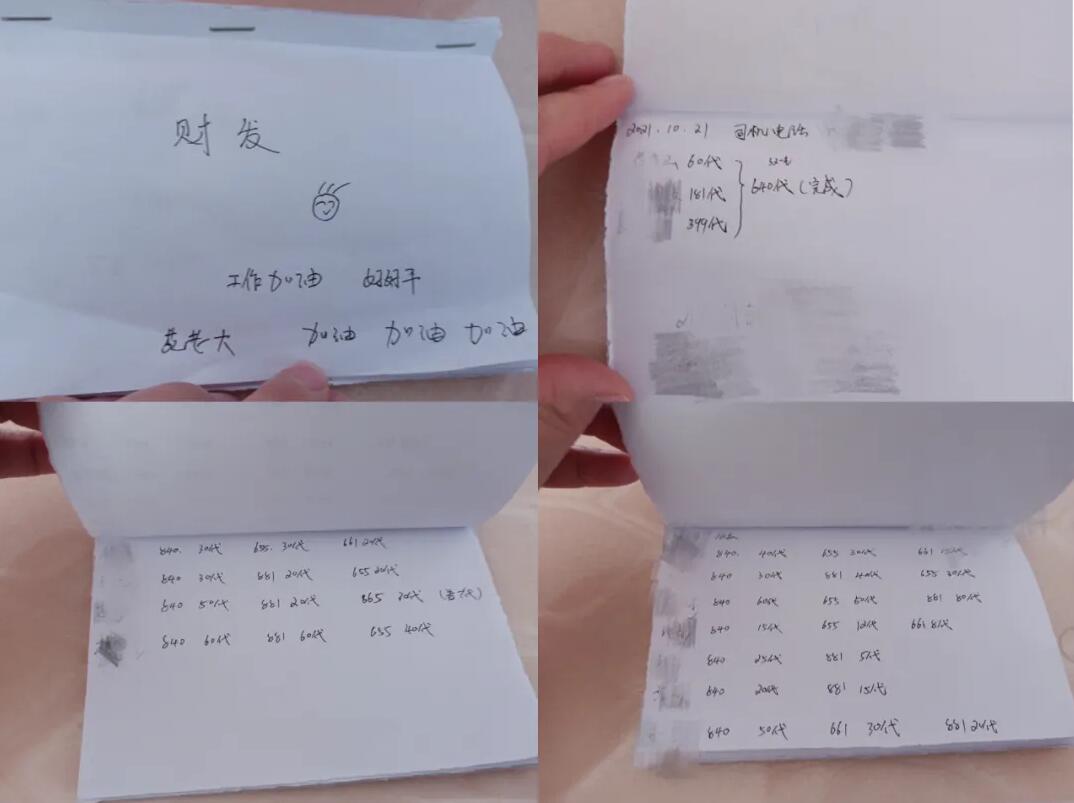 财发
工作加油 好好干
老大 加油 加油 加油
2021.10.21 司机电话
60代
181代
399代
640代(完成)
840. 30代 655. 30代 661 20代
840 30代 881 20代 655 20代
840 50代 881 20代 865 30代
840 60代 881 60代 655 40代
840. 40代 655 30代 661 15代
840 30代 881 40代 655 30代
840 60代 655 80代 881 80代
840 15代 655 12代 661 8代
840 25代 881 5代
840 20代 881 15代
840 50代 661 30代 881 20代